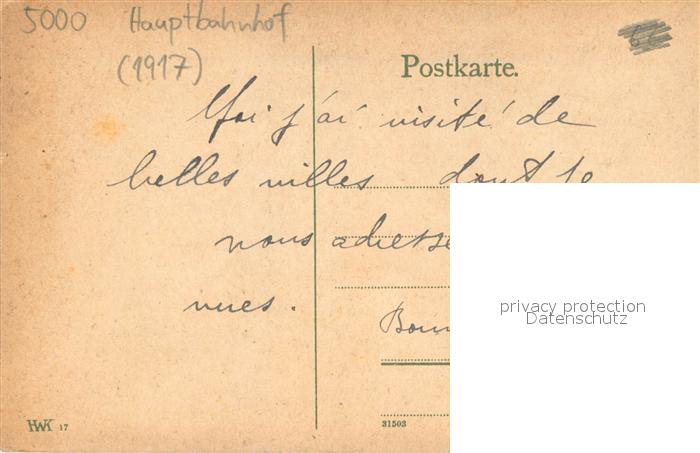 5000 Hauptbahnhof
(1917)
Postkarte.
j'ai visité de
belles villes dont je
vous adresse
vues.
HWK 17
31503
privacy protection
Datenschutz